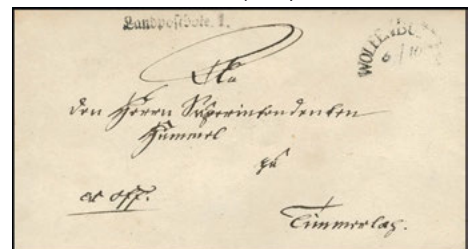 Landpostbote. 1.
WOLFENBÜ
6/10
An
den Herrn Superintendenten
Hummel
zu
ex off.
Timmerlah.